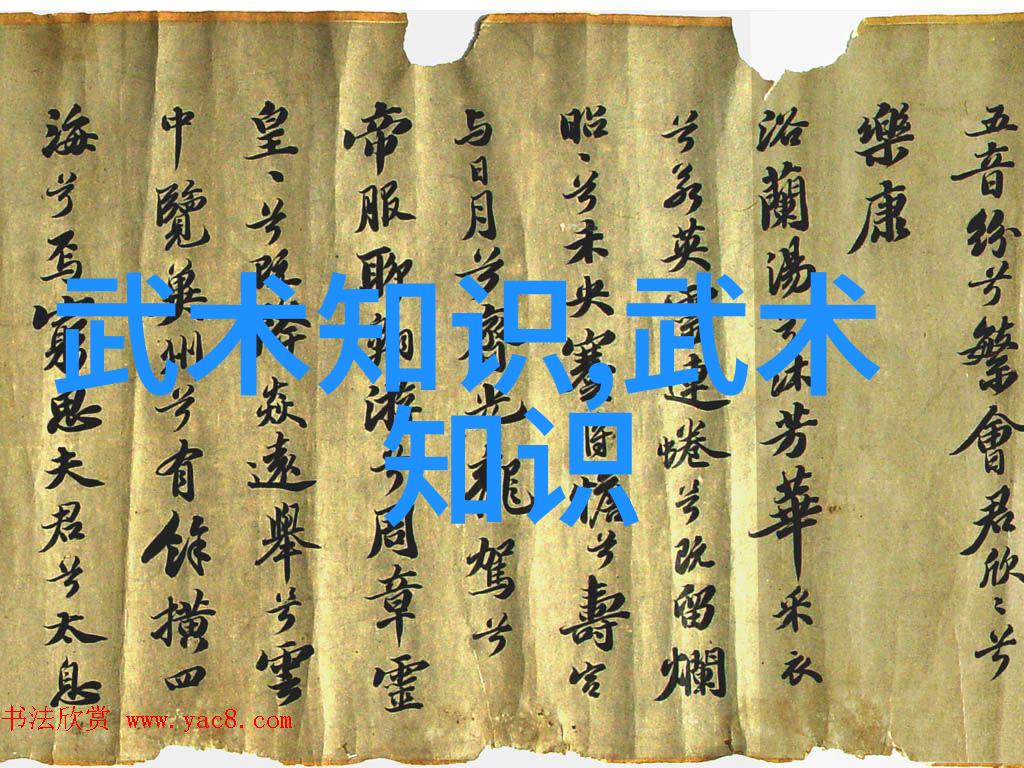 五音紛兮繁會君欣〻兮
樂康
浴蘭湯兮沐芳華采衣
兮若英靈連蜷兮既留爛
昭〻兮未央蹇將憺兮壽宮
与日月兮齊光龍駕兮
帝服聊翱游兮周章靈
皇〻兮既降焱遠舉兮雲
中覽兾州兮有餘撗四
海兮焉窮思夫君兮太息
武术知识,武术
知识
书法欣赏 www.yac8.com